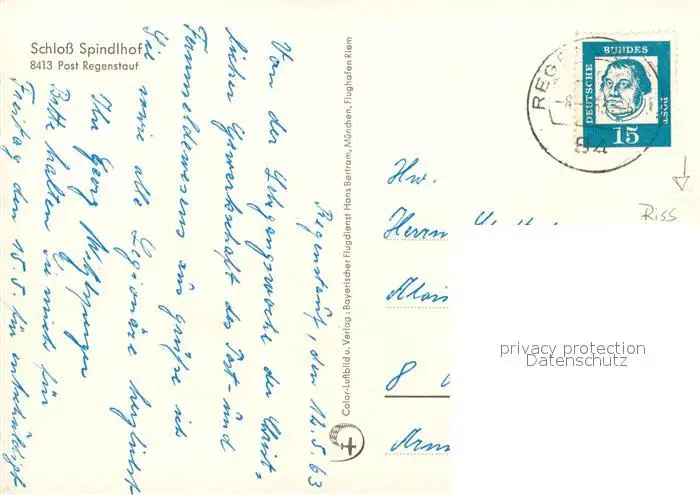 Schloß Spindlhof
8413 Post Regenstauf
Regenstauf, den 12.5.63
Von der Lehrgangswoche der Christ-
lichen Gewerkschaft des Post- und
Fernmeldewesens aus grüße ich
Sie sowie alle Legionäre herzlichst
Ihr Georg
Bitte halten Sie mich für
Freitag den 15.5. für entschuldigt
Color-Luftbild u. Verlag: Bayerischer Flugdienst Hans Bertram, München, Flughafen Riem
REGE
84
DEUTSCHE
BUNDES
POST
15
Riss
Hw.
Herrn
Alois
8
privacy protection
Datenschutz